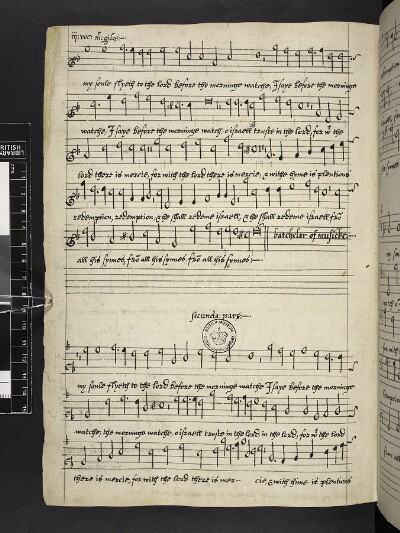 iij: voc: mr: giles:
my soule flyeth to the lord before the morninge watche, I saye before the morninge
watche, I saye before the morninge watch, o israell truste in the lord, for wt the
lord there is mercie, for with the lord there is mercie, & withe hyme is plentious
redemption, redemption, & he shall redeme israell, & he shall redeme israell frō
all his synnes, frō all his synnes frō all his synnes:
batchelar of musicke:
secunda pars:
my soule flyeth to the lord before the morninge watche I saye before the morninge
watche, the morninge watche, o israell truste in the lord, in the lord, for wt the lord
there is mercie, for with the lord there is mer- cie, & with hime is plentious
BRITISH
LIBRARY